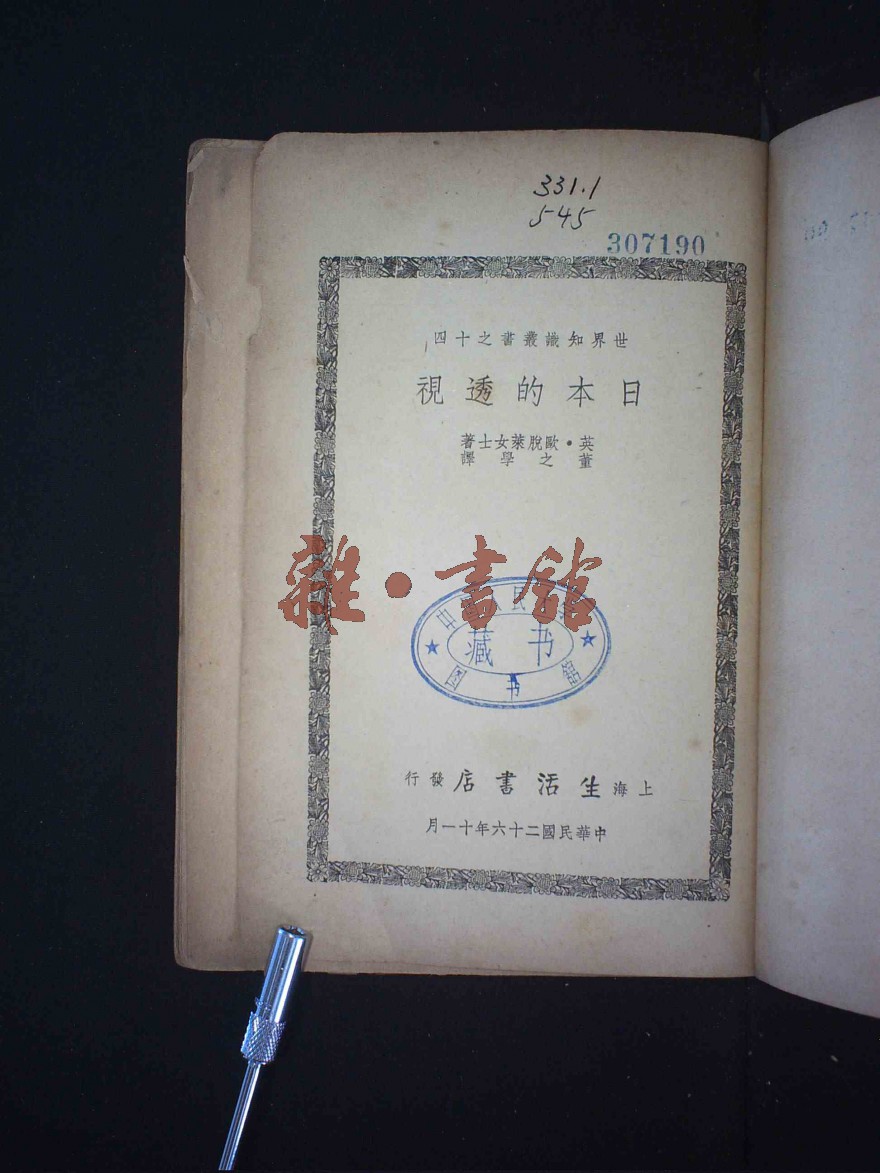 331.1
545
307190
世界知識叢書之十四
日本的透視
英·歐脫萊女士著
董之學譯
雜·書舘
中 民
藏书
图书馆
上海生活書店發行
中華民國二十六年十一月